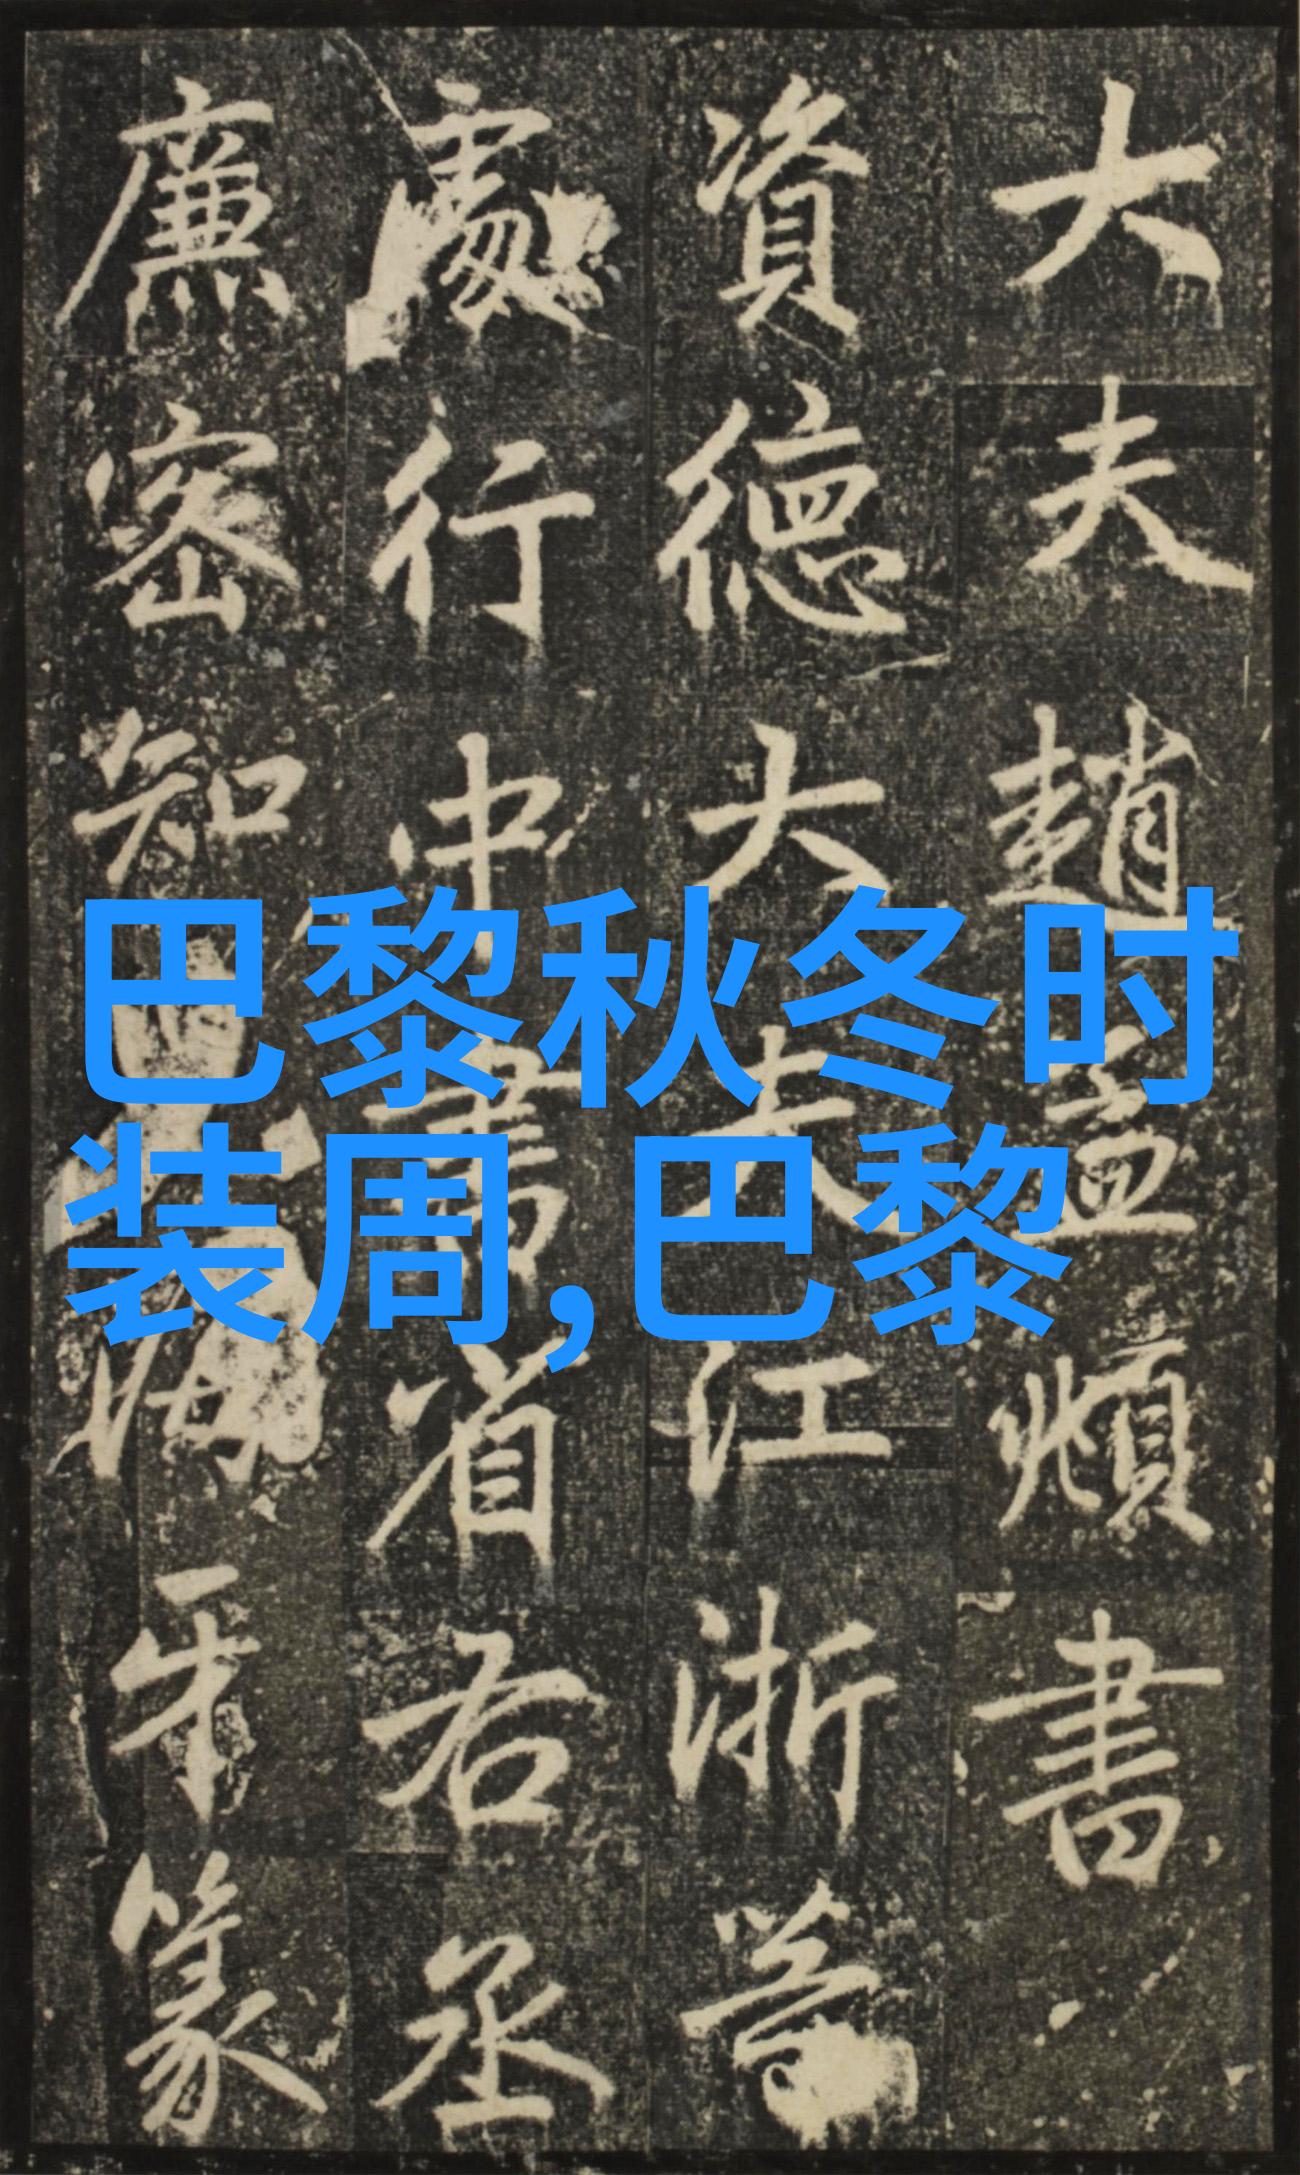 大夫趙孟頫書
資德大夫江浙等
處行中書省右丞
廉密知
牙篆
巴黎秋冬时
装周,巴黎